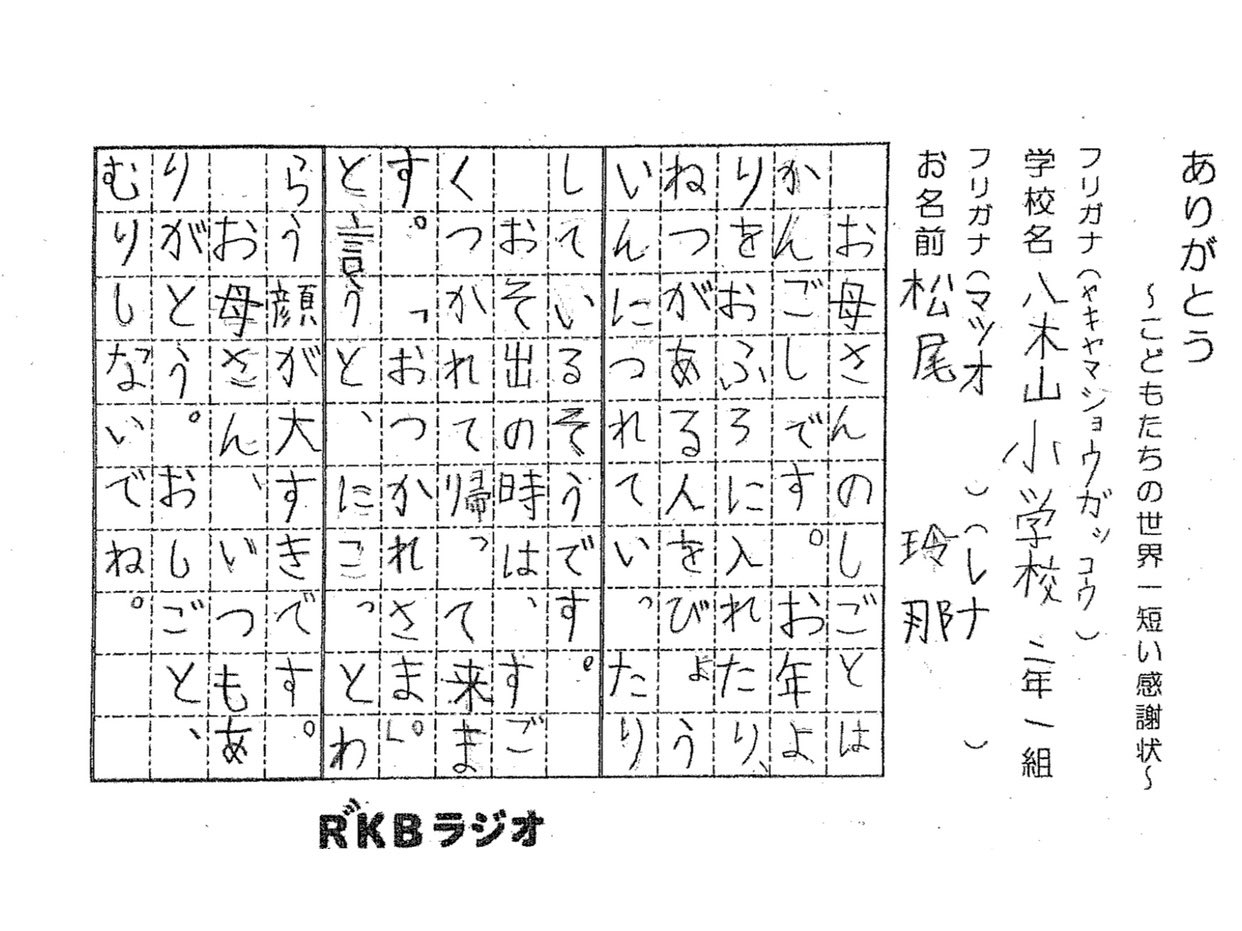 ありがとう
～こどもたちの世界一短い感謝状～
フリガナ（ヤキヤマショウガッコウ）
学校名 八木山小学校 二年一組
フリガナ（マツオ）（レナ）
お名前 松尾 玲那
　お母さんのしごとは
かんごしです。お年よ
りをおふろに入れたり、
ねつがある人をびょう
いんにつれていったり
しているそうです。
　おそ出の時は、すご
くつかれて帰って来ま
す。「おつかれさま。」
と言うと、にこっとわ
らう顔が大すきです。
　お母さん、いつもあ
りがとう。おしごと、
むりしないでね。
RKBラジオ